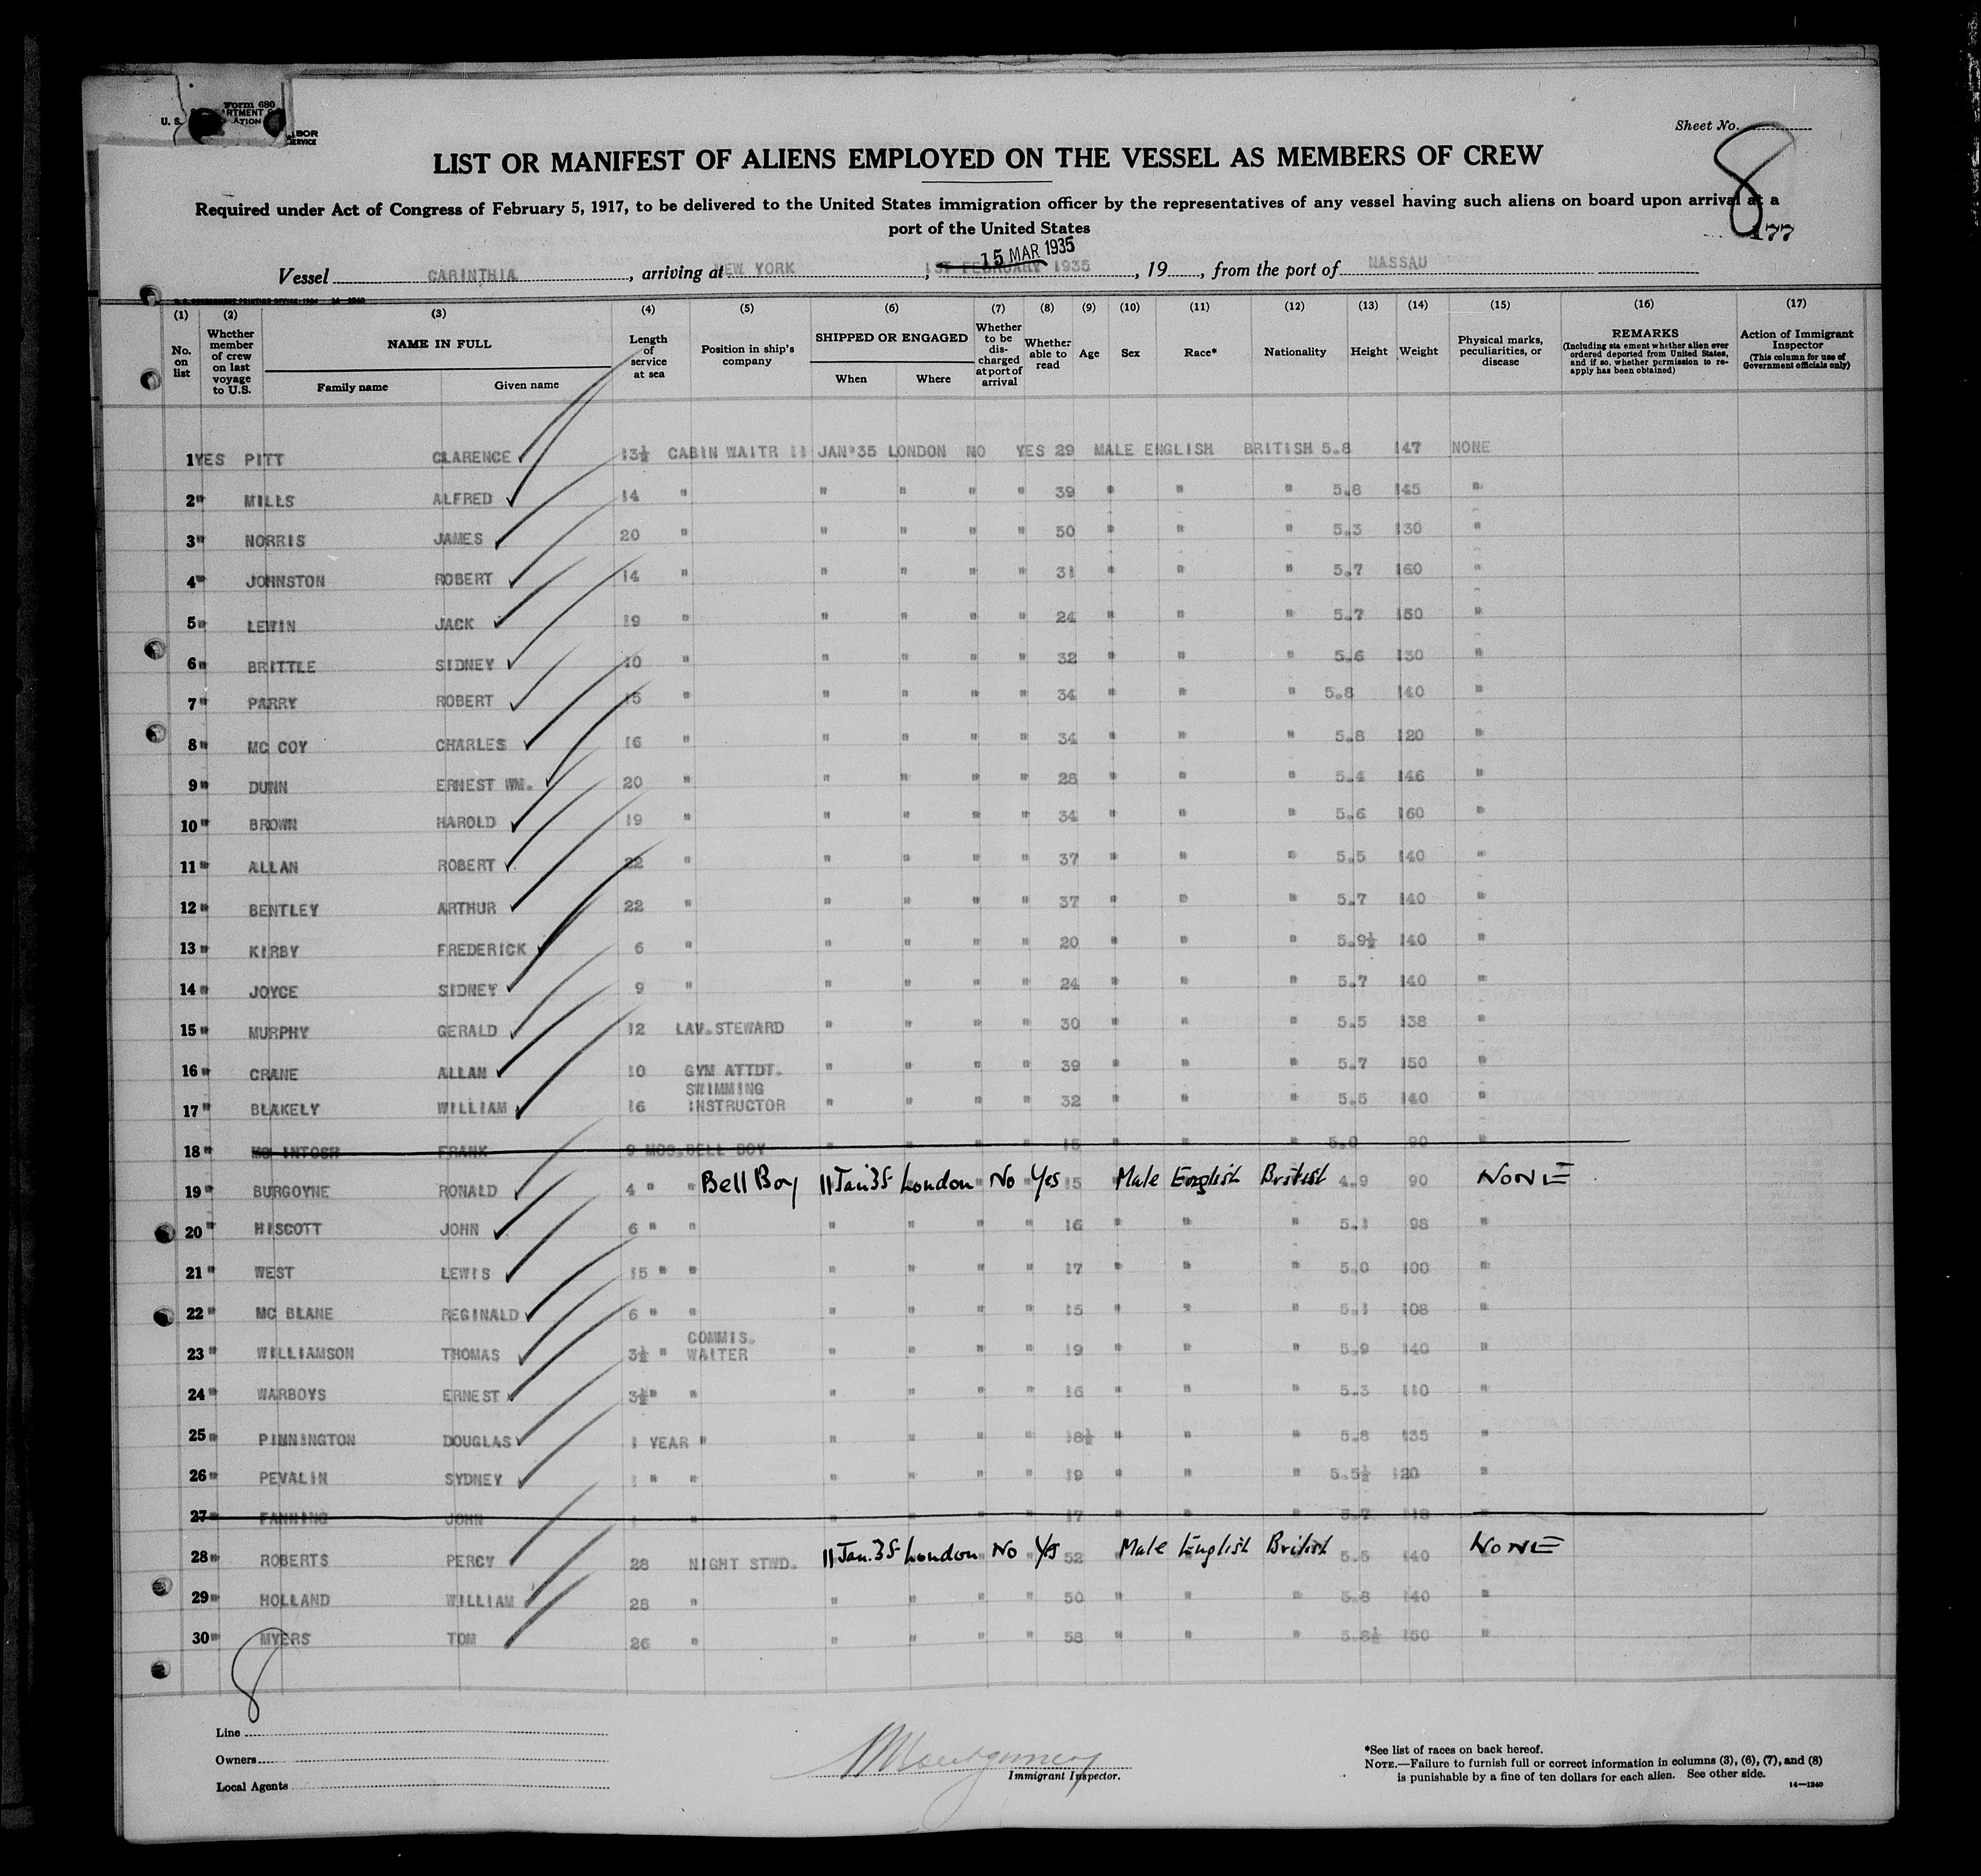 Form 680
U. S.
LABOR
SERVICE
Sheet No.
8
LIST OR MANIFEST OF ALIENS EMPLOYED ON THE VESSEL AS MEMBERS OF CREW
Required under Act of Congress of February 5, 1917, to be delivered to the United States immigration officer by the representatives of any vessel having such aliens on board upon arrival at a
port of the United States
177
15 MAR 1935
Vessel CARINTHIA, arriving at NEW YORK, 1ST FEBRUARY 1935, 19, from the port of NASSAU
(1) (2) (3) (4) (5) (6) (7) (8) (9) (10) (11) (12) (13) (14) (15) (16) (17)
No. on list
Whether member of crew on last voyage to U.S.
NAME IN FULL
Family name Given name
Length of service at sea
Position in ship's company
SHIPPED OR ENGAGED
When Where
Whether to be discharged at port of arrival
Whether able to read
Age
Sex
Race*
Nationality
Height
Weight
Physical marks, peculiarities, or disease
REMARKS
(Including statement whether alien ever ordered deported from United States, and if so, whether permission to reapply has been obtained)
Action of Immigrant Inspector
(This column for use of Government officials only)
1 YES PITT CLARENCE 13½ CABIN WAITR 11 JAN 35 LONDON NO YES 29 MALE ENGLISH BRITISH 5.8 147 NONE
2 " MILLS ALFRED 14 " " " " " 39 " " " 5.8 145 "
3 " NORRIS JAMES 20 " " " " " 50 " " " 5.3 130 "
4 " JOHNSTON ROBERT 14 " " " " " 31 " " " 5.7 160 "
5 " LEWIN JACK 19 " " " " " 24 " " " 5.7 150 "
6 " BRITTLE SIDNEY 10 " " " " " 32 " " " 5.6 130 "
7 " PARRY ROBERT 15 " " " " " 34 " " " 5.8 140 "
8 " MC COY CHARLES 16 " " " " " 34 " " " 5.8 120 "
9 " DUNN ERNEST WM. 20 " " " " " 28 " " " 5.4 146 "
10 " BROWN HAROLD 19 " " " " " 34 " " " 5.6 160 "
11 " ALLAN ROBERT 22 " " " " " 37 " " " 5.5 140 "
12 " BENTLEY ARTHUR 22 " " " " " 37 " " " 5.7 140 "
13 " KIRBY FREDERICK 6 " " " " " 20 " " " 5.9½ 140 "
14 " JOYCE SIDNEY 9 " " " " " 24 " " " 5.7 140 "
15 " MURPHY GERALD 12 LAV.STEWARD " " " " 30 " " " 5.5 138 "
16 " CRANE ALLAN 10 GYM ATTDT. " " " " 39 " " " 5.7 150 "
17 " BLAKELY WILLIAM 16 SWIMMING INSTRUCTOR " " " " 32 " " " 5.5 140 "
18 " MC INTOSH FRANK 9 MOS. BELL BOY " " " " 15 " " " 5.0 90 "
19 " BURGOYNE RONALD 4 " " Bell Boy 11 Jan 35 London No Yes 15 Male English British 4.9 90 NONE
20 " HISCOTT JOHN 6 " " " " " " 16 " " " 5.1 98 "
21 " WEST LEWIS 15 " " " " " " 17 " " " 5.0 100 "
22 " MC BLANE REGINALD 6 " " " " " " 15 " " " 5.1 108 "
23 " WILLIAMSON THOMAS 3½ " COMMIS. WAITER " " " " 19 " " " 5.9 140 "
24 " WARBOYS ERNEST 3½ " " " " " " 16 " " " 5.3 110 "
25 " PINNINGTON DOUGLAS 1 YEAR " " " " " 18½ " " " 5.8 135 "
26 " PEVALIN SYDNEY 1 " " " " " " 19 " " " 5.5½ 120 "
27 " FANNING JOHN 1 " " " " " 17 " " " 5.7 118 "
28 " ROBERTS PERCY 28 NIGHT STWD. 11 Jan. 35 London No Yes 52 Male English British 5.5 140 NONE
29 " HOLLAND WILLIAM 28 " " " " " 50 " " " 5.8 140 "
30 " MYERS TOM 26 " " " " " 58 " " " 5.8½ 150 "
8
Line
Owners
Local Agents
Montgomery
Immigrant Inspector.
*See list of races on back hereof.
NOTE.—Failure to furnish full or correct information in columns (3), (6), (7), and (8)
is punishable by a fine of ten dollars for each alien. See other side.
14—1240